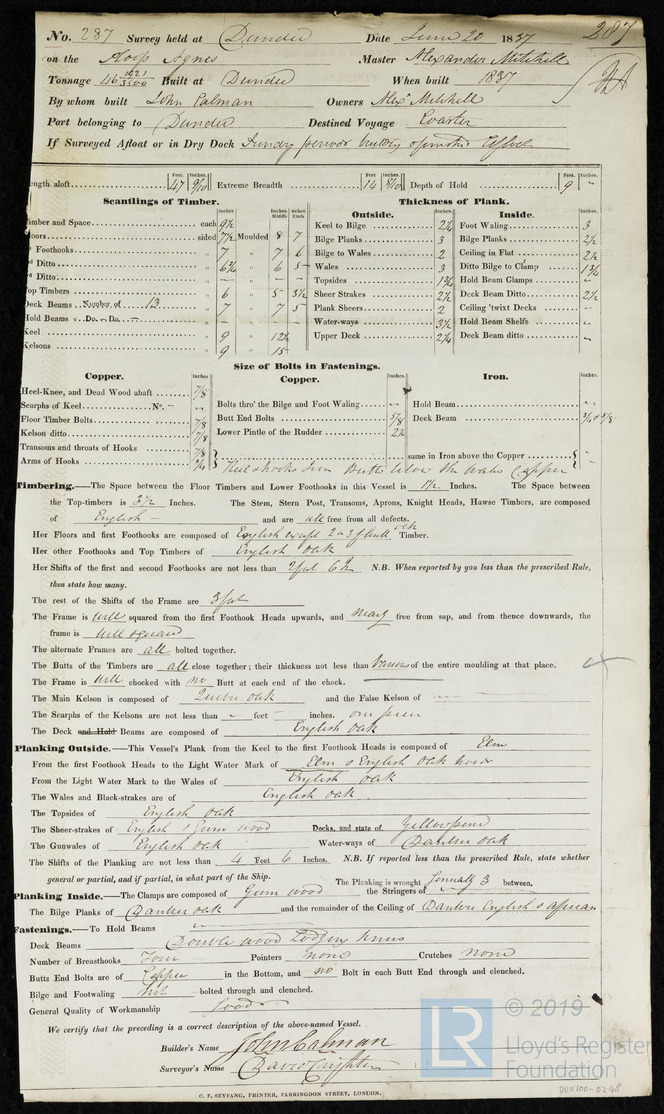 No. 287 Survey held at Dundee Date June 20 1837 287
on the Sloop Agnes Master Alexander Mitchell
Tonnage 46 1921/3500 Built at Dundee When built 1837
By whom built John Calman Owners Alexr Mitchell
Port belonging to Dundee Destined Voyage Coaster
If Surveyed Afloat or in Dry Dock Sundry periods building
ength aloft 47 9/10 Extreme Breadth 14 8/10 Depth of Hold 9 -
Feet. Inches. Feet. Inches. Feet. Inches.
Scantlings of Timber. Thickness of Plank.
Inches Inches. Middle Inches Ends Outside. Inches Inside. Inches.
imber and Space each 9½ Keel to Bilge 2¼ Foot Waling 3
oors sided 7½ Moulded 8 7 Bilge Planks 3 Bilge Planks 2½
Foothooks " 7 " 7 6 Bilge to Wales 2 Ceiling in Flat 2½
Ditto " 6¾ " 6 5 Wales 3 Ditto Bilge to Clamp 1¾
Ditto " - " - - Topsides 1¾ Hold Beam Clamps -
op Timbers " 6 " 5 3½ Sheer Strakes 2½ Deck Beam Ditto 2½
Deck Beams Number of 13 " 7 " 7 5 Plank Sheers 2 Ceiling 'twixt Decks -
Hold Beams Do. Do. - " - " - - Water-ways 3½ Hold Beam Shelfs -
Keel " 9 " 12½ Upper Deck 2¼ Deck Beam ditto -
Kelsons " 9 " 15
Size of Bolts in Fastenings.
Copper. Inches Copper. Inches. Iron. Inches.
Heel-Knee, and Dead Wood abaft 7/8 Bolts thro' the Bilge and Foot Waling - Hold Beam -
Scarphs of Keel No. - - Butt End Bolts 5/8 Deck Beam
Floor Timber Bolts 7/8 Lower Pintle of the Rudder 2¼
Kelson ditto 7/8
Transoms and throats of Hooks 7/8 same in Iron above the Copper -
Arms of Hooks ¾ Keel & hooks Iron Butts below the wales Copper
Timbering.—The Space between the Floor Timbers and Lower Foothooks in this Vessel is 1½ Inches. The Space between
the Top-timbers is 3½ Inches. The Stem, Stern Post, Transoms, Aprons, Knight Heads, Hawse Timbers, are composed
of English and are all free from all defects.
Her Floors and first Foothooks are composed of English except 2 or 3 of oak Timber.
Her other Foothooks and Top Timbers of English Oak
Her Shifts of the first and second Foothooks are not less than N.B. When reported by you less than the prescribed Rule,
then state how many.
The rest of the Shifts of the Frame are 3 feet
The Frame is well squared from the first Foothook Heads upwards, and nearly free from sap, and from thence downwards, the
frame is well squared
The alternate Frames are all bolted together.
The Butts of the Timbers are all close together; their thickness not less than of the entire moulding at that place.
The Frame is well chocked with no Butt at each end of the chock.
The Main Kelson is composed of oak and the False Kelson of
The Scarphs of the Kelsons are not less than - feet - inches. one piece
The Deck and Hold Beams are composed of English Oak
Planking Outside.—This Vessel's Plank from the Keel to the first Foothook Heads is composed of Elm
From the first Foothook Heads to the Light Water Mark of Elm & English Oak
From the Light Water Mark to the Wales of English Oak
The Wales and Black-strakes are of English Oak
The Topsides of English Oak
The Sheer-strakes of English & Gum wood Decks, and state of, Yellow pine
The Gunwales of English Oak Water-ways of Dantzic oak
The Shifts of the Planking are not less than 4 Feet 6 Inches. N.B. If reported less than the prescribed Rule, state whether
general or partial, and if partial, in what part of the Ship. The Planking is wrought generally 3 between.
Planking Inside.—The Clamps are composed of Gum wood the Stringers of
The Bilge Planks of Dantzic oak and the remainder of the Ceiling of Dantzic English & African
Fastenings.—To Hold Beams
Deck Beams Double wood Lodging Knees
Number of Breasthooks Four Pointers none Crutches none
Butts End Bolts are of Copper in the Bottom, and no Bolt in each Butt End through and clenched.
Bilge and Footwaling bolted through and clenched.
General Quality of Workmanship Good
We certify that the preceding is a correct description of the above-named Vessel.
Builder's Name John Calman
Surveyor's Name David Crighton
C. F. SEYFANG, PRINTER, FARRINGDON STREET, LONDON.
LR © 2019
Lloyd's Register
Foundation
DUN100-0248